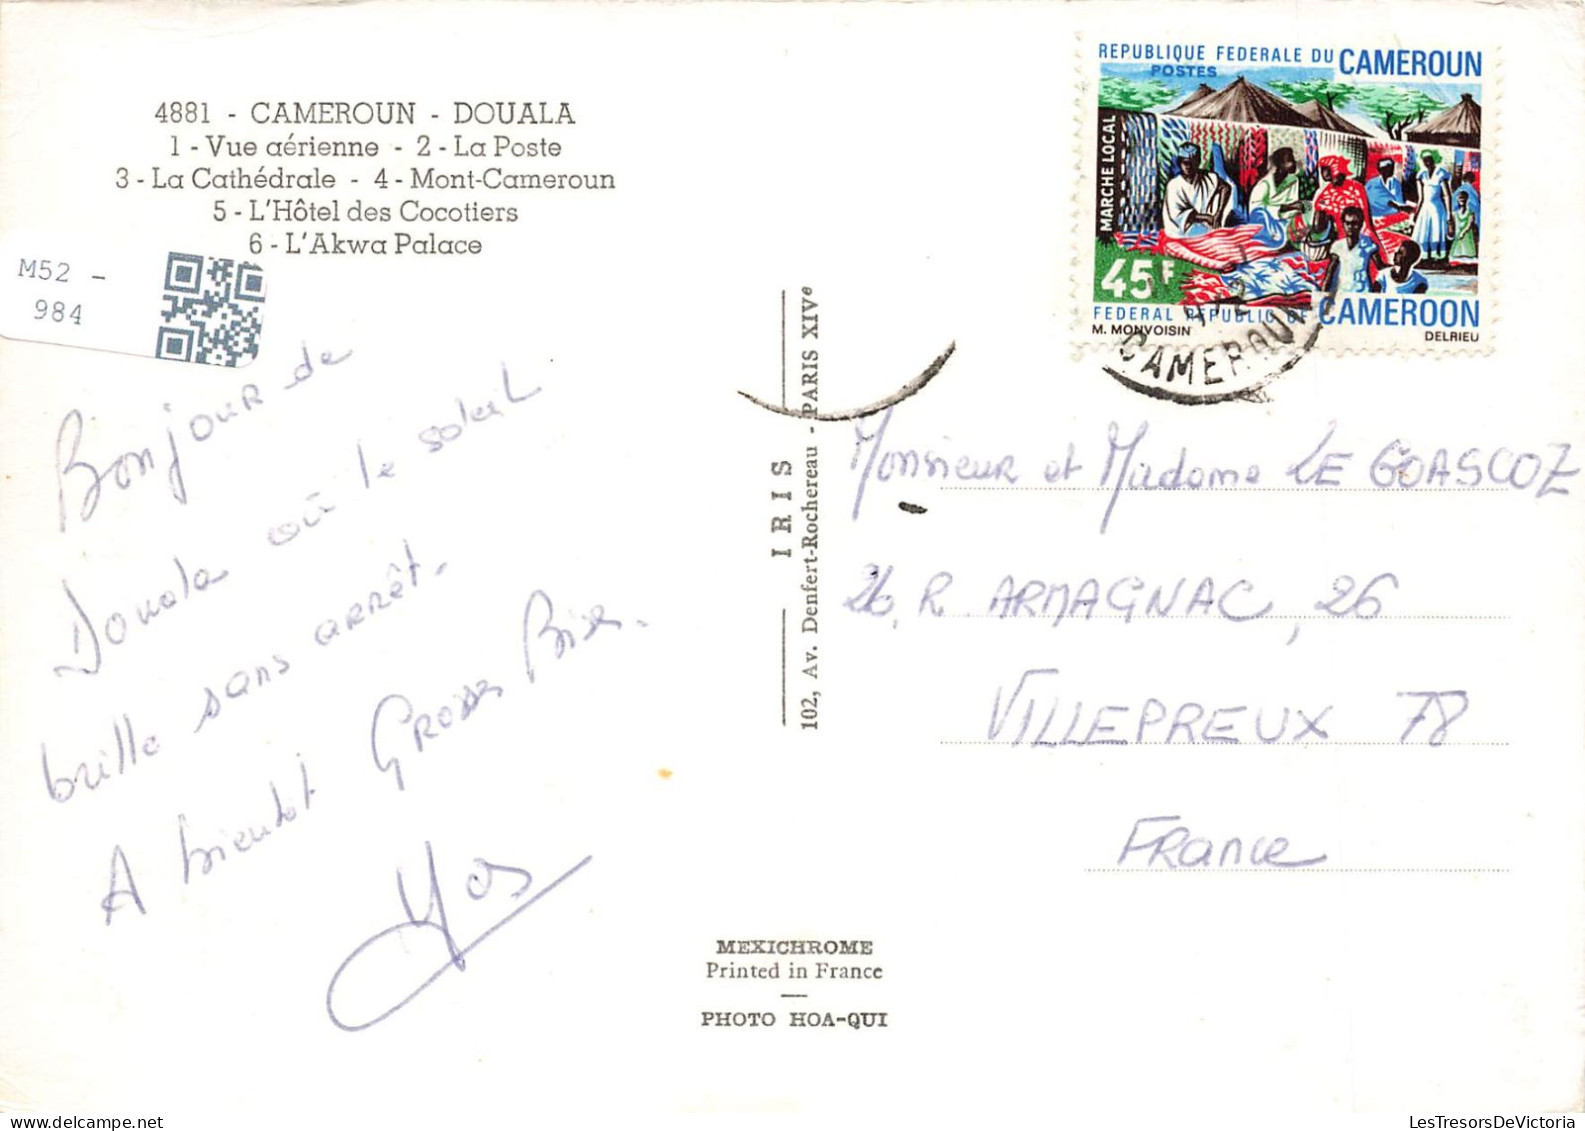 4881 - CAMEROUN - DOUALA
1 - Vue aérienne - 2 - La Poste
3 - La Cathédrale - 4 - Mont-Cameroun
5 - L'Hôtel des Cocotiers
6 - L'Akwa Palace
M52 -
984
Bonjour de
Douala où le soleil
brille sans arrêt.
A bientôt Grosses Bises.
IRIS
102, Av. Denfert-Rochereau - PARIS XIVe
MEXICHROME
Printed in France
PHOTO HOA-QUI
REPUBLIQUE FEDERALE DU CAMEROUN
POSTES
MARCHE LOCAL
45F
FEDERAL REPUBLIC OF CAMEROON
M. MONVOISIN
DELRIEU
CAMEROUN
Monsieur et Madame LE GOASCOZ
26, R. ARMAGNAC, 26
VILLEPREUX 78
France
LesTresorsDeVictoria